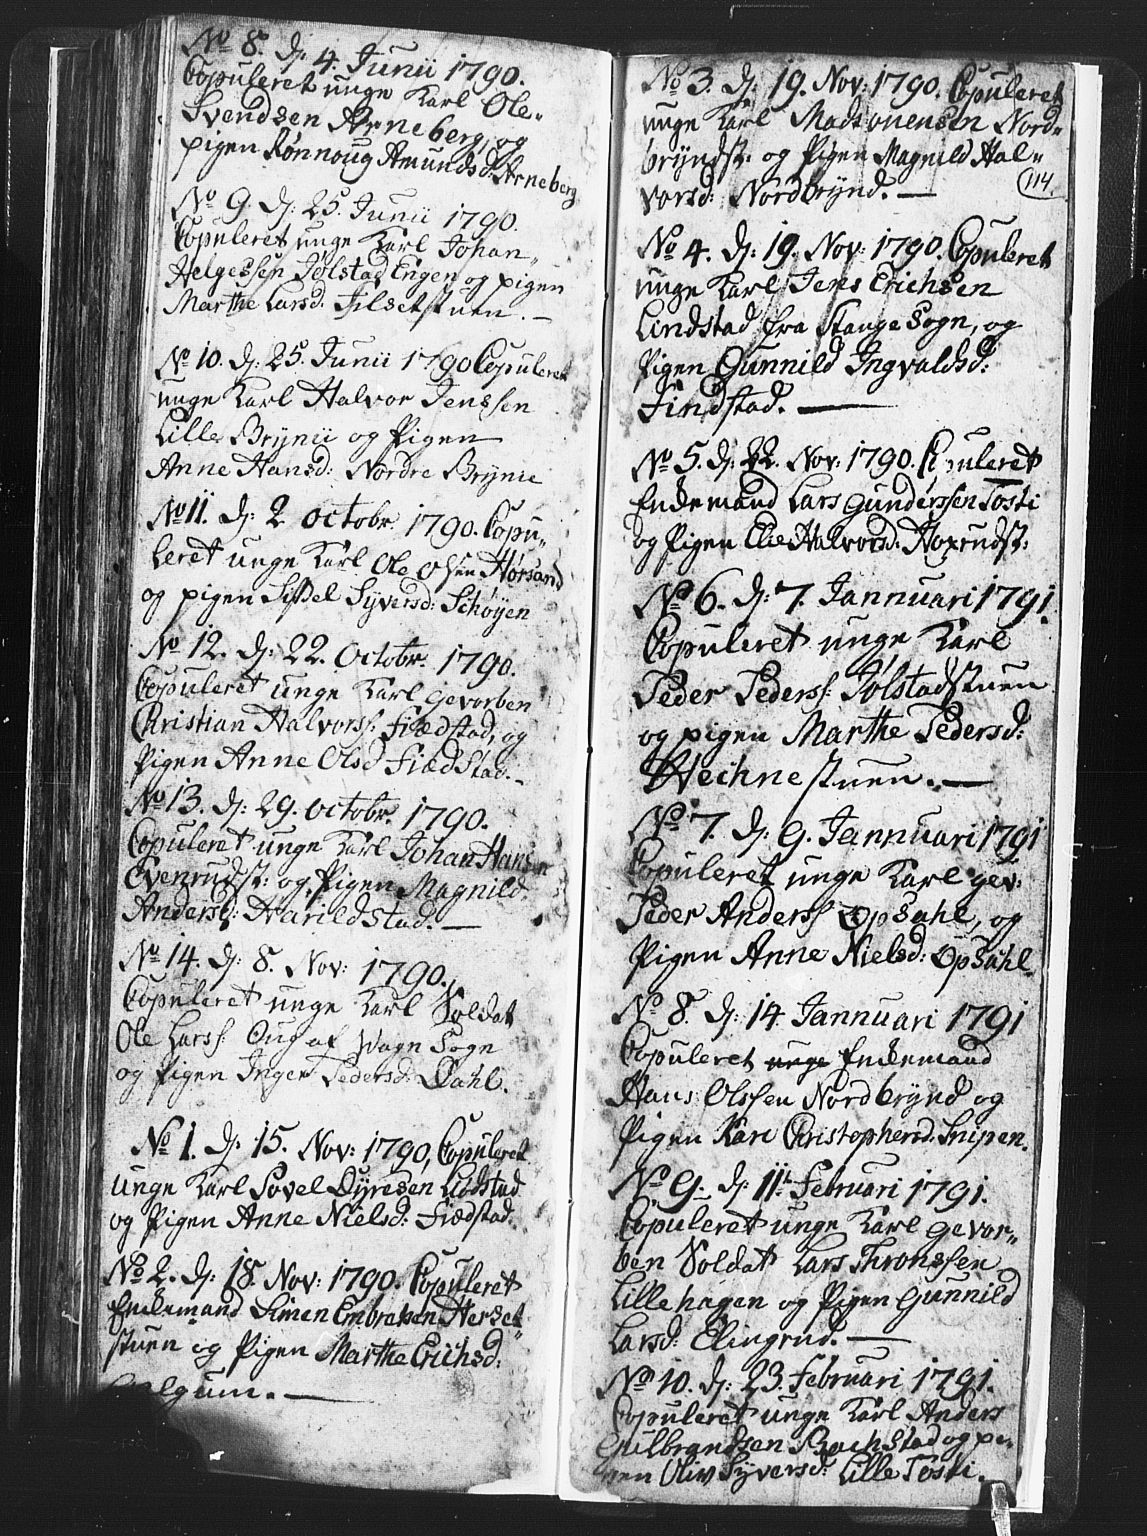 No 8. D: 4. Junii 1790.
Copuleret unge Karl Ole
Svendsen Arneberg, og
pigen Rønnoug Amundsd: Arneberg
No 9. D: 25. Junii 1790.
Copuleret unge Karl Johan
Helgessen Jølstad Engen og pigen
Marthe Larsd: Filsetstuen. —
No 10. D: 25. Junii 1790 Copuleret
unge Karl Halvor Jenssen
Lille Brynii og Pigen
Anne Hansd: Nordre Brynie
No 11. D: 2 Octobr. 1790. Copu„
leret unge Karl Ole Olsen Horsand
og pigen Sissel Syversd: Schøyen
No 12. D: 22. Octobr. 1790.
Copuleret unge Karl Gevorben
Christian Halvorss: Fiædstad, og
Pigen Anne Olsd Fiædstad. —
No 13. D: 29. Octobr. 1790.
Copuleret unge Karl Johan Hansen
Evenrudst: og Pigen Magnild
Anderss: Harildstad. —
No 14. D: 8. Nov: 1790.
Copuleret unge Karl Soldat
Ole Larss: Oug af Wagn Sogn
og Pigen Inger Pedersd: Dahl.
No 1. D: 15. Nov: 1790, Copuleret
unge Karl Povel Dyresen Lodstad
og Pigen Anne Nielsd: Fiædstad.
No 2. D: 18. Nov: 1790. Copuleret
Enkemand Simen Embretsen Herset„
stuen og Pigen Marthe Erichsd:
No 3. D: 19. Nov: 1790. Copuleret
unge Karl Mads Nord„
bryndst: og Pigen Magnild Hal„
vorsd: Nordbrynd. —
114.
No 4. D: 19. Nov: 1790. Copuleret
unge Karl Jens Erichsen
Lindstad fra Stange Sogn, og
Pigen Gunnild Ingvaldsd:
Findstad. —
No 5. D: 22. Nov: 1790. Copuleret
Enkemand Lars Gunderssen Tosti
og Pigen Elie Halvorsd: Noxrudst:
No 6. D: 7. Jannuari 1791.
Copuleret unge Karl
Peder Peders: Jølstadstuen
og pigen Marthe Pedersd:
Hveihnestuen. —
No 7. D: 9. Jannuari 1791
Copuleret unge Karl gev:
Peder Anderss: Opsahl, og
Pigen Anne Nielsd: Opsahl
No 8. D: 14. Jannuari 1791
Copuleret unge Enkemand
Hans Olssen Nordbrÿnd og
Pigen Kari Christophersd. Snipen.
No 9. D: 11te Februari 1791.
Copuleret unge Karl Gevor„
ben Soldat Lars Thronssen
Lillehagen og Pigen Gunnild
Larsd: Elingrud. —
No 10. D: 23. Februari 1791.
Copuleret unge Karl Anders
Gulbrandsen Bachstad og pi„
gen Oliv Syversd: Lille Tosti.